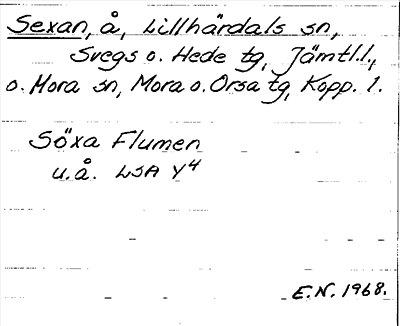 Sexan, å, Lillhärdals sn,
Svegs o. Hede tg, Jämtl.l.,
o. Mora sn, Mora o. Orsa tg, Kopp. l.
Söxa Flumen
u.å. LSA Y4
E.N. 1968.